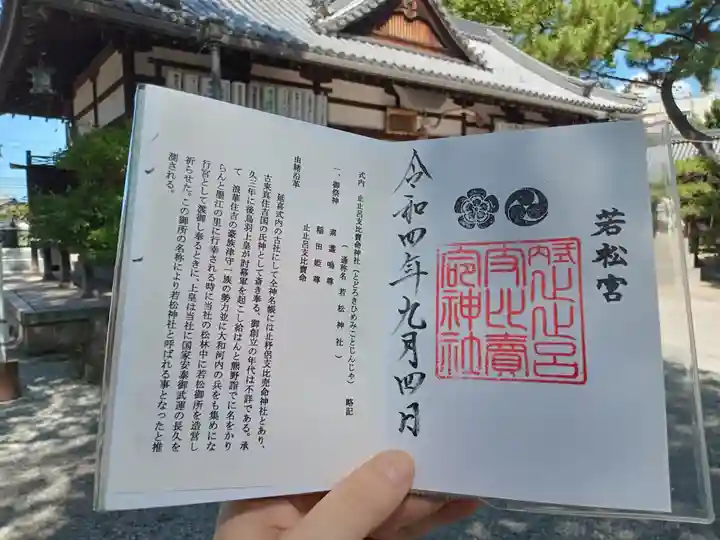 若松宮
式内止止呂支比賣命神社
令和四年九月四日
式内 止止呂支比賣命神社(とどろきひめみことじんじゃ) 略記
(通称名 若松神社)
一、御祭神 素盞嗚尊
稲田姫尊
止止呂支比賣命
由緒沿革
延喜式内の古社にして全神名帳には止杼侶支比売命神社とあり、
古来真住吉国の氏神として斎き奉る。御創立の年代は不詳である。承
久三年に後鳥羽上皇が討幕軍を起こし給はんと熊野詣でに名をかり
て、浪華住吉の豪族津守一族の勢力並に大和河内の兵をも集めにな
らんと墨江の里に行幸される時に当社の松林中に若松御所を造営し
行宮として渡御し奉るときに、上皇は当社に国家安泰御武運の長久を
祈らせた。この御所の名称により若松神社と呼ばれる事となったと推
測される。